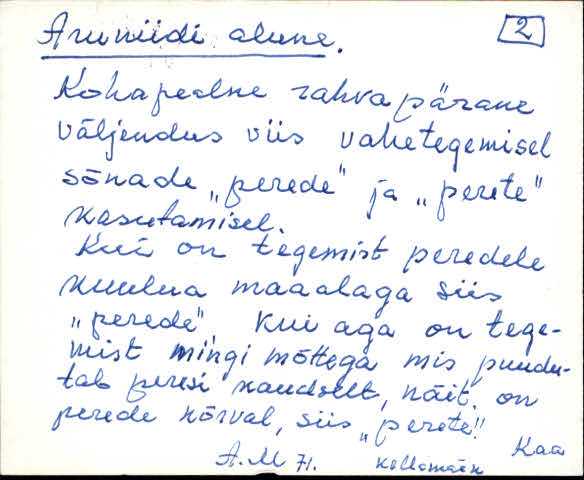 Aruniidi alune. 2
Kohapealne rahva pärane
väljendus viis vahetegemisel
sõnade „perede" ja „perete"
kasutamisel.
Kui on tegemist peredele
kuuluva maaalaga siis
„perede" Kui aga on tege-
mist mingi mõttega mis puudu-
tab peresi kaudselt, näit. on
perede kõrval, siis „perete"!
A.M 71. Kaa